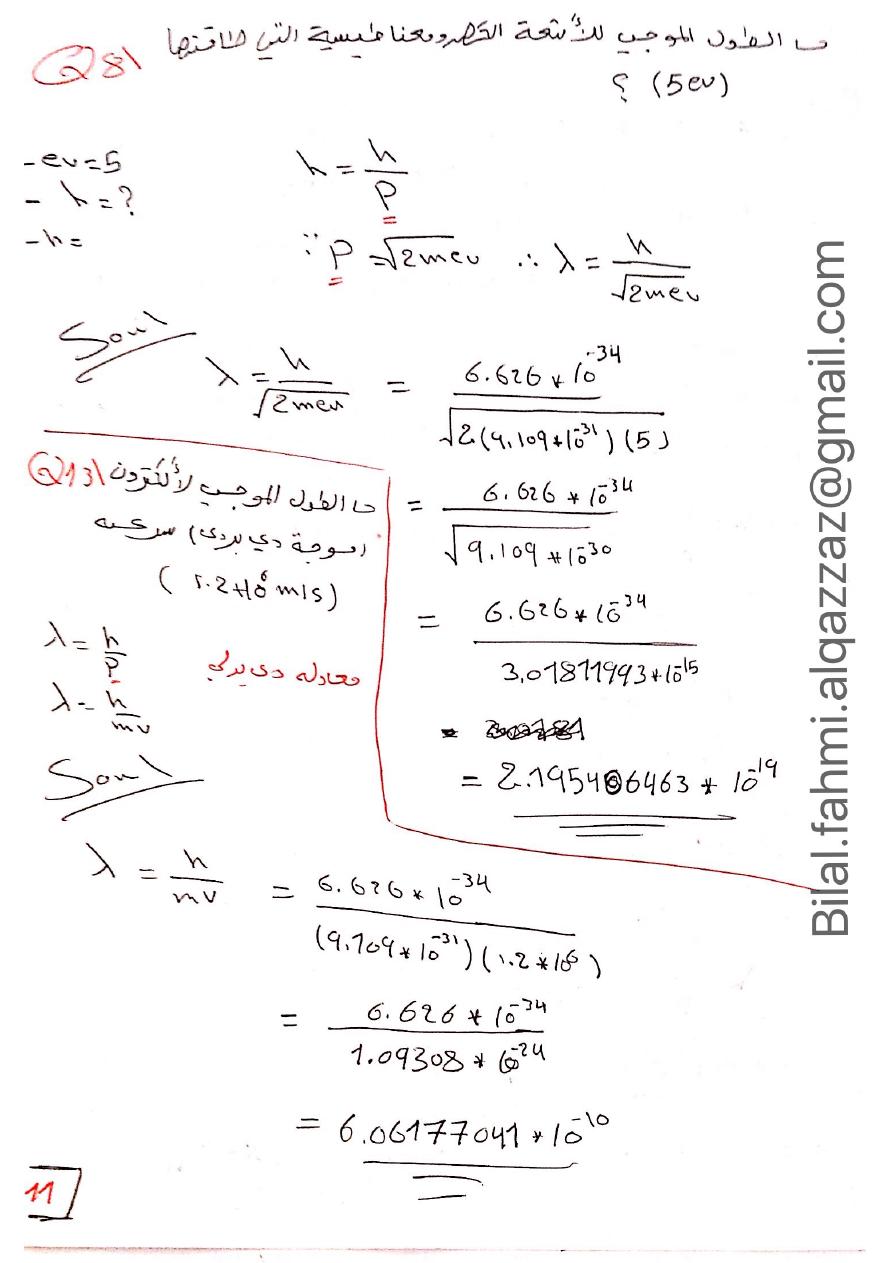 Q8\ ما الطول الموجب للأشعة الكهرومغناطيسية التي طاقتها
(5ev) ؟
- ev = 5
- λ = ?
- h =
λ = h/P
∵ P = √2mev ∴ λ = h/√2mev
Soul
λ = h/√2mev = 6.626 * 10^-34 / √2(9.109*10^-31)(5)
= 6.626 * 10^-34 / √9.109 * 10^-30
= 6.626 * 10^-34 / 3.01811993 * 10^-15
= 2.195406463 * 10^-19
Q13\ ما الطول الموجب لألكترون
(موجة دي برولي) سرعته
(1.2*10^6 m/s)
λ = h/P
معادله دي برلي
λ = h/mv
Soul
λ = h/mv = 6.626 * 10^-34 / (9.109 * 10^-31)(1.2 * 10^6)
= 6.626 * 10^-34 / 1.09308 * 10^-24
= 6.06177041 * 10^-10
11
Bilal.fahmi.alqazzaz@gmail.com